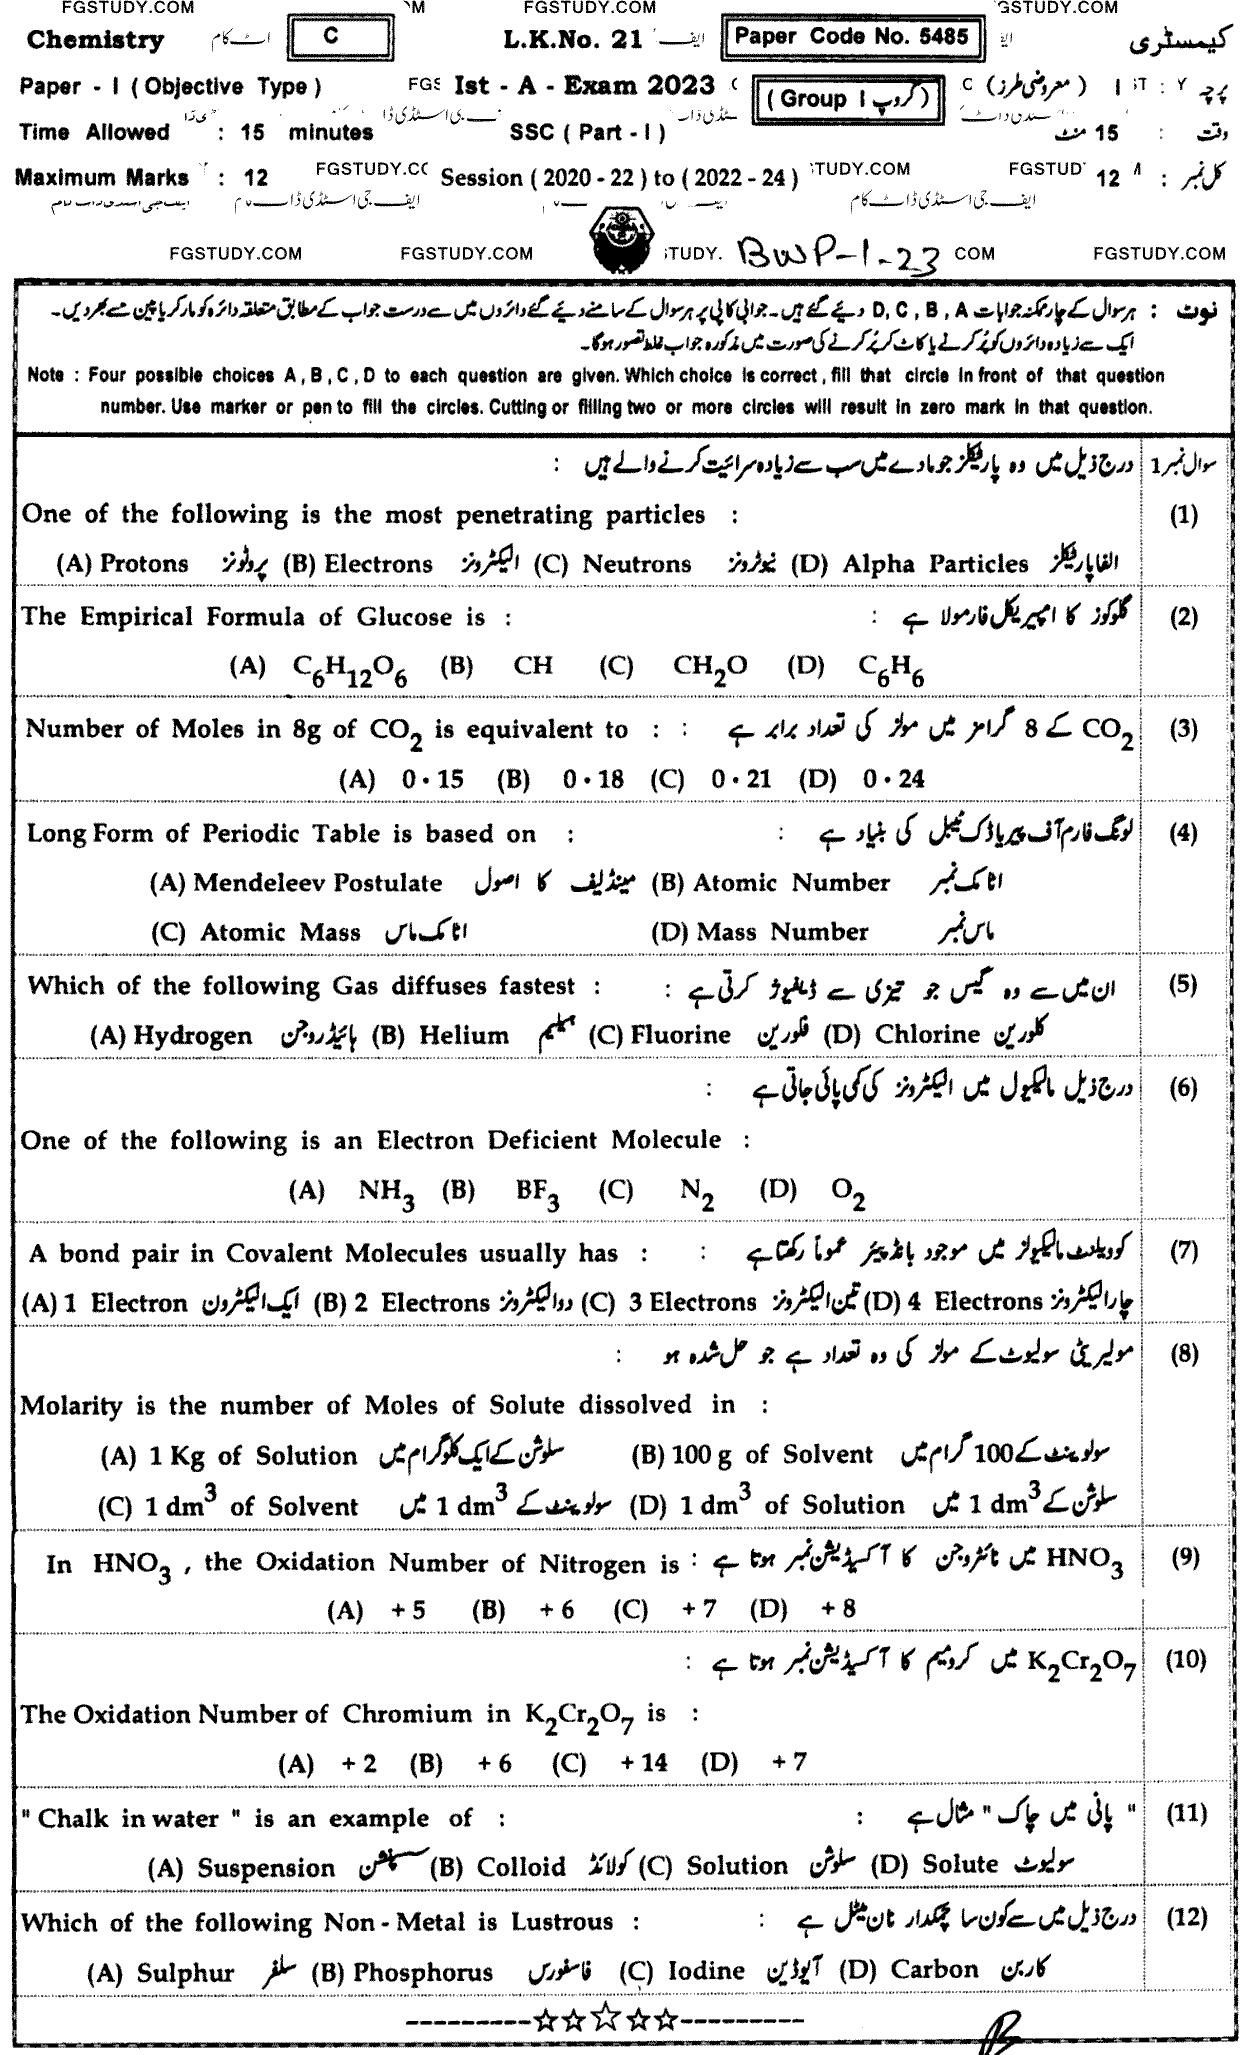 FGSTUDY.COM FGSTUDY.COM GSTUDY.COM
Chemistry C L.K.No. 21 Paper Code No. 5485 کیمسٹری
Paper - I ( Objective Type ) Ist - A - Exam 2023 ( Group I گروپ ) پرچہ : I ( معروضی طرز )
Time Allowed : 15 minutes SSC ( Part - I ) وقت : 15 منٹ
Maximum Marks : 12 FGSTUDY.C Session ( 2020 - 22 ) to ( 2022 - 24 ) TUDY.COM FGSTUD کل نمبر : 12
FGSTUDY.COM FGSTUDY.COM TUDY. BWP-1-23 COM FGSTUDY.COM
نوٹ : ہر سوال کے چار ممکنہ جوابات D, C, B, A دیئے گئے ہیں۔ جوابی کاپی پر ہر سوال کے سامنے دیئے گئے دائروں میں سے درست جواب کے مطابق متعلقہ دائرہ کو مارکر یا پین سے بھر دیں۔
ایک سے زیادہ دائروں کو پُر کرنے یا کاٹ کر پُر کرنے کی صورت میں مذکورہ جواب غلط تصور ہوگا۔
Note : Four possible choices A , B , C , D to each question are given. Which choice is correct , fill that circle in front of that question
number. Use marker or pen to fill the circles. Cutting or filling two or more circles will result in zero mark in that question.
سوال نمبر 1 درج ذیل میں وہ پارٹیکلز جو مادے میں سب سے زیادہ سرائیت کرنے والے ہیں :
One of the following is the most penetrating particles : (1)
(A) Protons پروٹونز (B) Electrons الیکٹرونز (C) Neutrons نیوٹرونز (D) Alpha Particles الفا پارٹیکلز
The Empirical Formula of Glucose is : گلوکوز کا امپیریکل فارمولا ہے : (2)
(A) C₆H₁₂O₆ (B) CH (C) CH₂O (D) C₆H₆
Number of Moles in 8g of CO₂ is equivalent to : CO₂ کے 8 گرامز میں مولز کی تعداد برابر ہے : (3)
(A) 0·15 (B) 0·18 (C) 0·21 (D) 0·24
Long Form of Periodic Table is based on : لونگ فارم آف پیریاڈک ٹیبل کی بنیاد ہے : (4)
(A) Mendeleev Postulate مینڈلیف کا اصول (B) Atomic Number اٹامک نمبر
(C) Atomic Mass اٹامک ماس (D) Mass Number ماس نمبر
Which of the following Gas diffuses fastest : ان میں سے وہ گیس جو تیزی سے ڈیفیوژ کرتی ہے : (5)
(A) Hydrogen ہائیڈروجن (B) Helium ہیلیم (C) Fluorine فلورین (D) Chlorine کلورین
درج ذیل مالیکیول میں الیکٹرونز کی کمی پائی جاتی ہے : (6)
One of the following is an Electron Deficient Molecule :
(A) NH₃ (B) BF₃ (C) N₂ (D) O₂
A bond pair in Covalent Molecules usually has : کوویلنٹ مالیکیولز میں موجود بانڈ پیئر عموماً رکھتا ہے : (7)
(A) 1 Electron ایک الیکٹرون (B) 2 Electrons دو الیکٹرونز (C) 3 Electrons تین الیکٹرونز (D) 4 Electrons چار الیکٹرونز
مولیریٹی سولیوٹ کے مولز کی وہ تعداد ہے جو حل شدہ ہو : (8)
Molarity is the number of Moles of Solute dissolved in :
(A) 1 Kg of Solution سلوشن کے ایک کلوگرام میں (B) 100 g of Solvent سولوینٹ کے 100 گرام میں
(C) 1 dm³ of Solvent سولوینٹ کے 1 dm³ میں (D) 1 dm³ of Solution سلوشن کے 1 dm³ میں
In HNO₃ , the Oxidation Number of Nitrogen is : HNO₃ میں نائٹروجن کا آکسیڈیشن نمبر ہوتا ہے : (9)
(A) + 5 (B) + 6 (C) + 7 (D) + 8
K₂Cr₂O₇ میں کرومیم کا آکسیڈیشن نمبر ہوتا ہے : (10)
The Oxidation Number of Chromium in K₂Cr₂O₇ is :
(A) + 2 (B) + 6 (C) + 14 (D) + 7
" Chalk in water " is an example of : " پانی میں چاک " مثال ہے : (11)
(A) Suspension سسپنشن (B) Colloid کولائڈ (C) Solution سلوشن (D) Solute سولیوٹ
Which of the following Non - Metal is Lustrous : درج ذیل میں سے کون سا چمکدار نان میٹل ہے : (12)
(A) Sulphur سلفر (B) Phosphorus فاسفورس (C) Iodine آیوڈین (D) Carbon کاربن